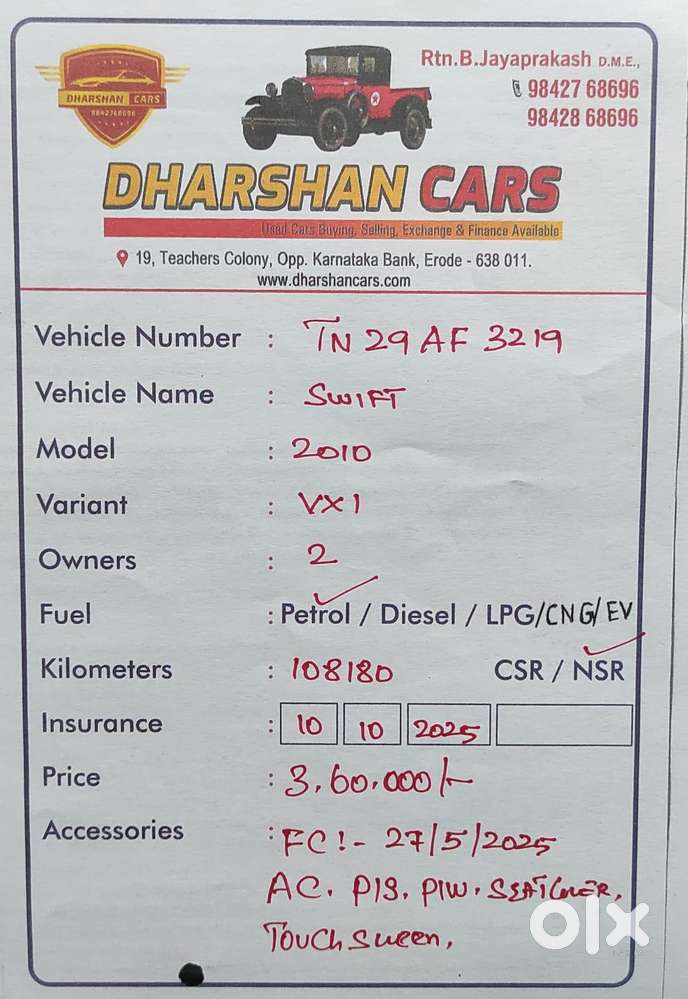 DHARSHAN CARS
9842768696
Rtn.B.Jayaprakash D.M.E.,
98427 68696
98428 68696
DHARSHAN CARS
Used Cars Buying, Selling, Exchange & Finance Available
19, Teachers Colony, Opp. Karnataka Bank, Erode - 638 011.
www.dharshancars.com
Vehicle Number : TN 29 AF 3219
Vehicle Name : SWIFT
Model : 2010
Variant : VX1
Owners : 2
Fuel : Petrol / Diesel / LPG/CNG/EV
Kilometers : 108180 CSR / NSR
Insurance : 10 10 2025
Price : 3,60,000/-
Accessories : FC:- 27/5/2025
AC, P/S, P/W, SEAT COVER,
Touch Screen,
olx